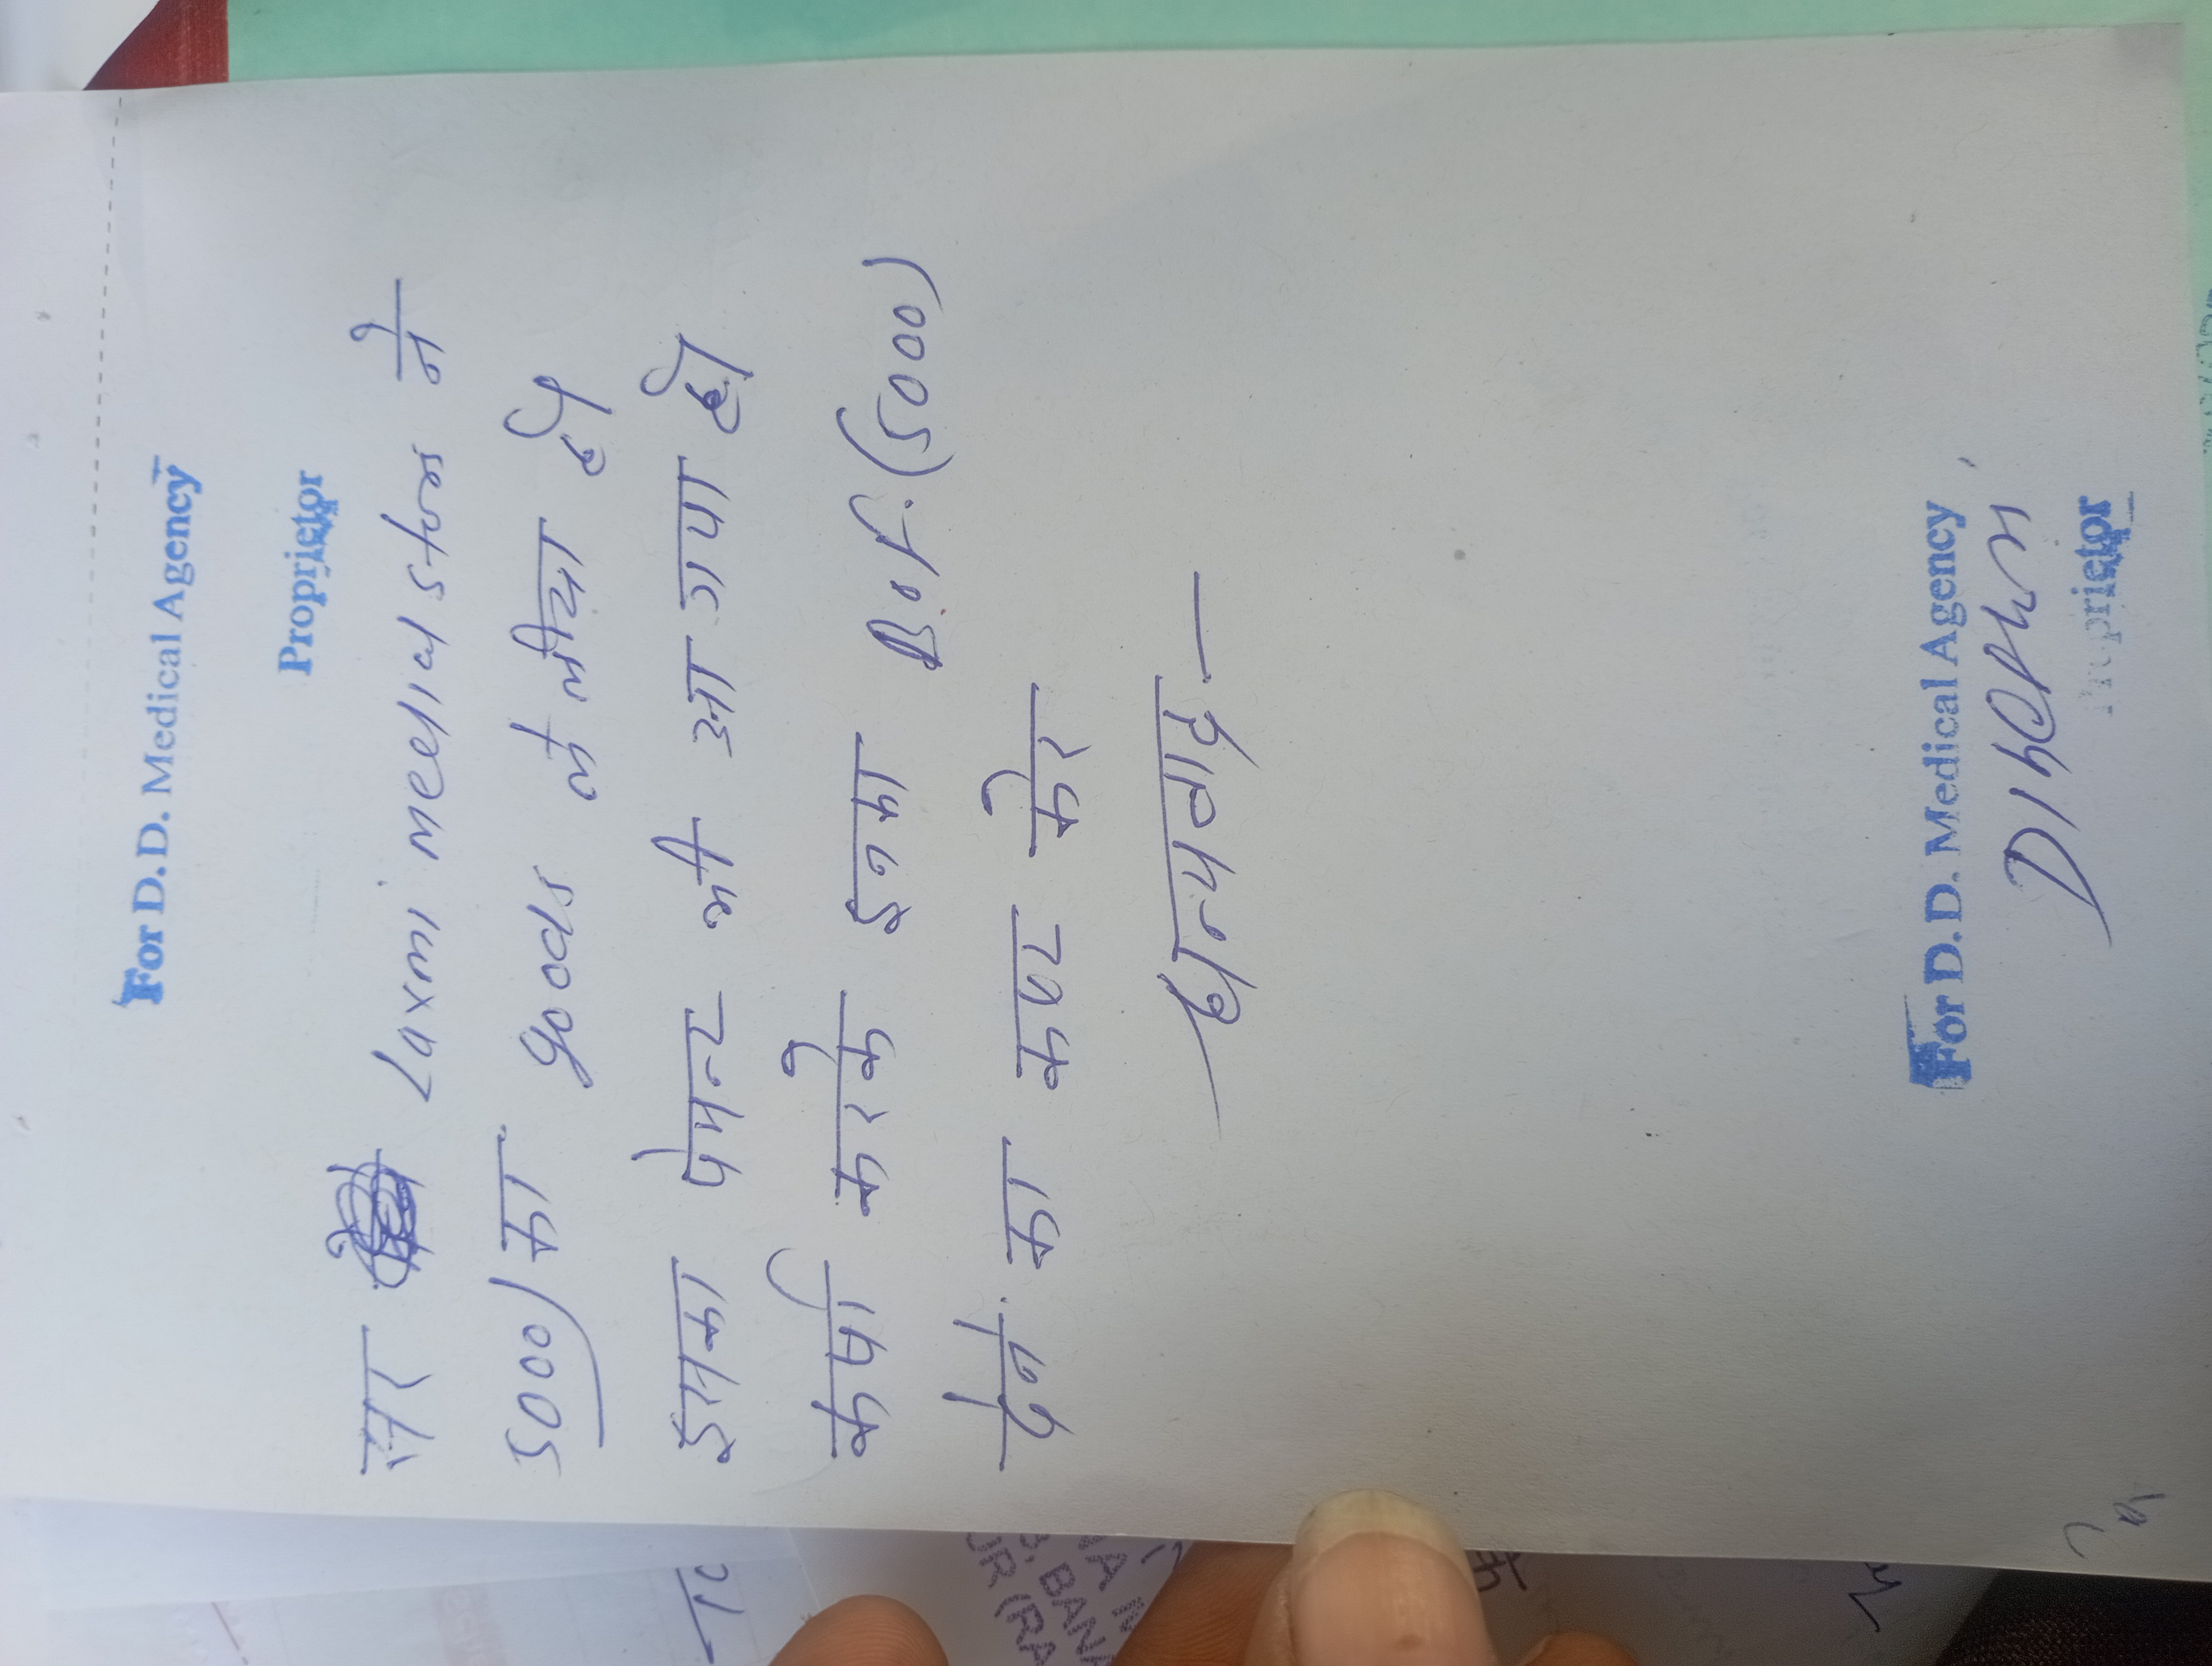 For D. D. Medical Agency
Proprietor
सर Laxmi medical store ने
5000/ का goods ले लीया है
इसका पेमन्ट भी आ गया है
कृपया करके इनका (5000)
का होल्ड कर
धन्यवाद
For D. D. Medical Agency
Proprietor